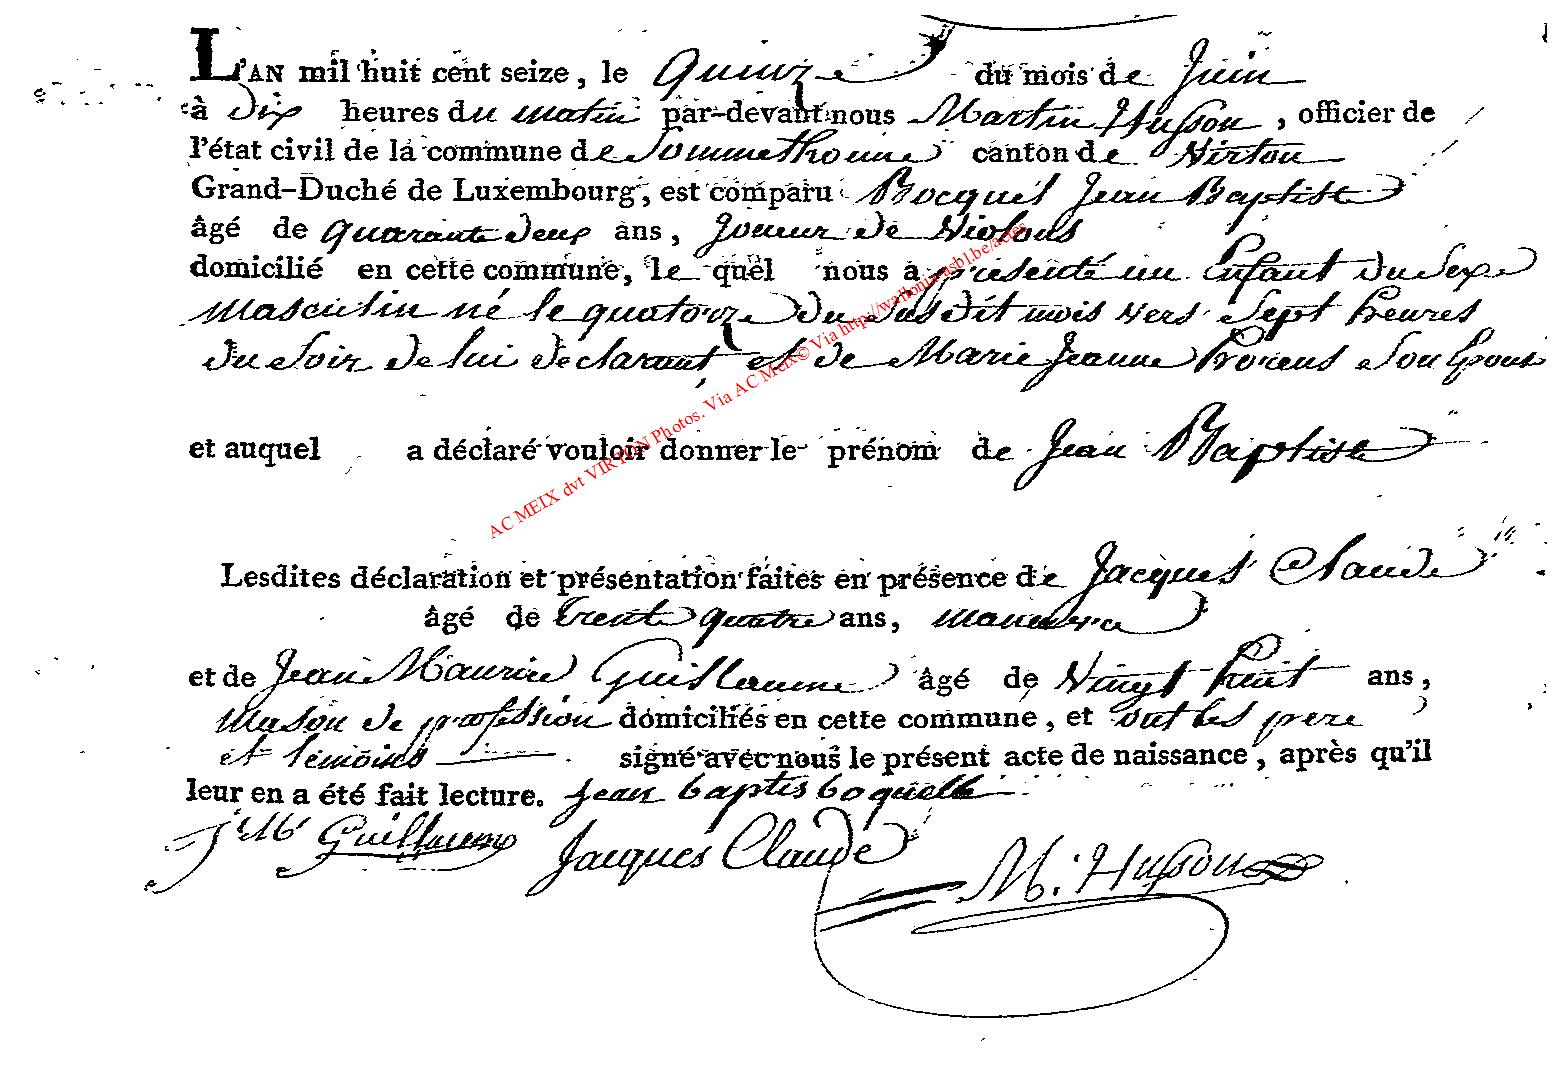 L'AN mil huit cent seize, le Quinze du mois de Juin
à Dix heures du matin par-devant nous Martin Husson, officier de
l'état civil de la commune de Sommethonne canton de Virton
Grand-Duché de Luxembourg, est comparu Bocquel Jean Baptiste
âgé de quarante deux ans, Joueur de Violons
domicilié en cette commune, le quel nous a présenté un Enfant du Sexe
Masculin né le quatorze du susdit mois vers Sept heures
du Soir de lui declarant et de Marie Jeanne Son Epouse
et auquel a déclaré vouloir donner le prénom de Jean Baptiste
AC MEIX dvt VIRTON Photos. Via AC Meix© Via http://wallonia-asbl.be/actes
Lesdites déclaration et présentation faites en présence de Jacques Claude
âgé de trent quatre ans, manuvre
et de Jean Maurice Guillaume âgé de Vingt huit ans,
Mason de profession domiciliés en cette commune, et ont les pere
et temoins signé avec nous le présent acte de naissance, après qu'il
leur en a été fait lecture. jean baptis boquelle
J M Guillaume Jacques Claude M. Husson